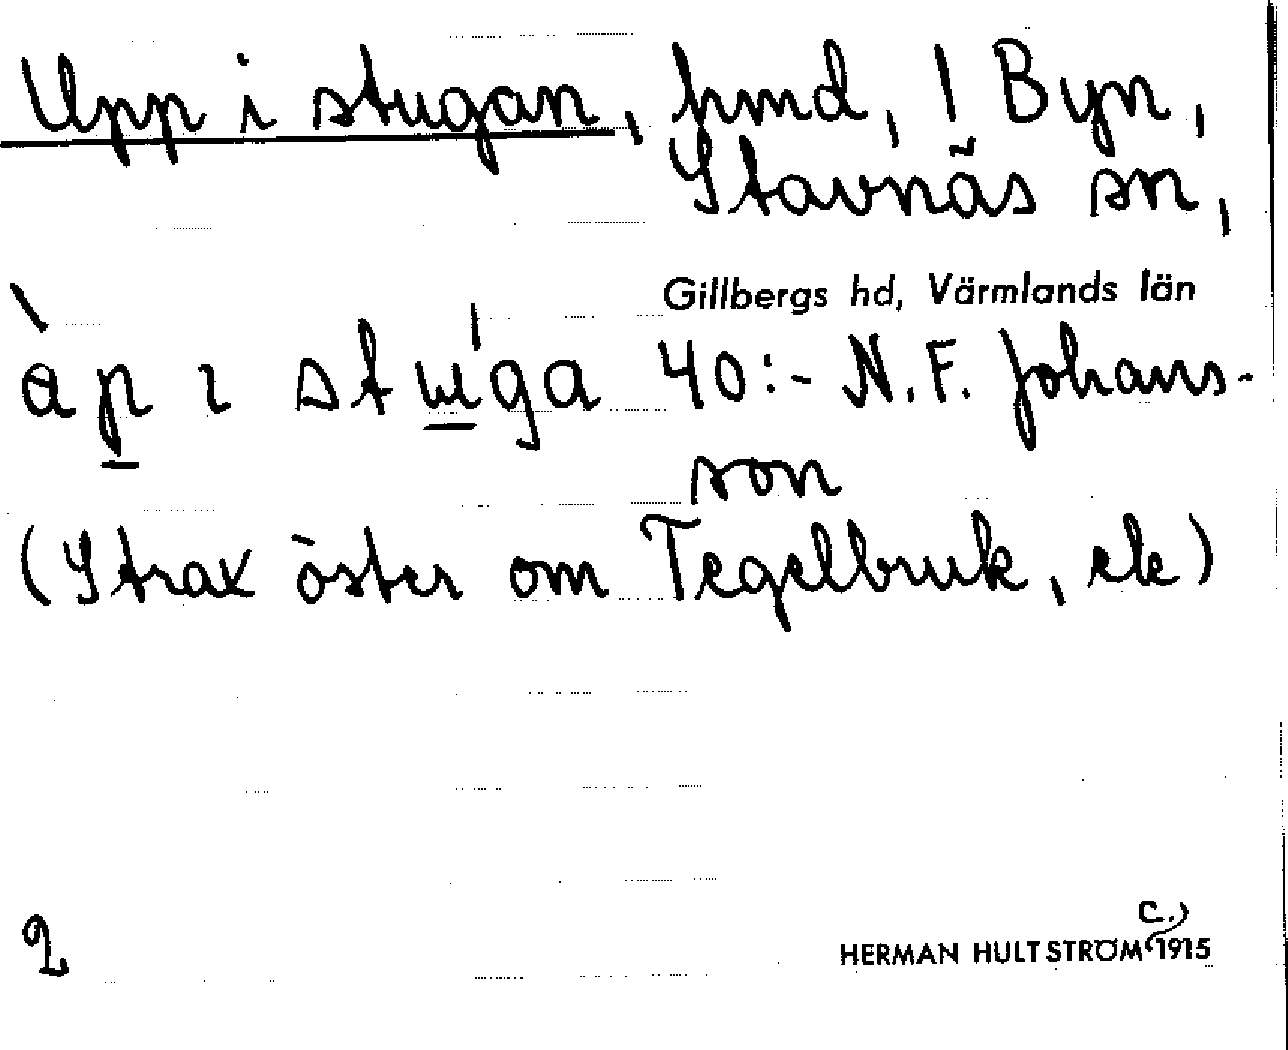 Upp i stugan, hmd, 1 Byn,
Stavnäs sn,
Gillbergs hd, Värmlands län
àp ɩ stɯ́ga 40:- N. F. Johans-
son
(Strax öster om Tegelbruk, ek)
2
HERMAN HULTSTRÖM c.) 1915